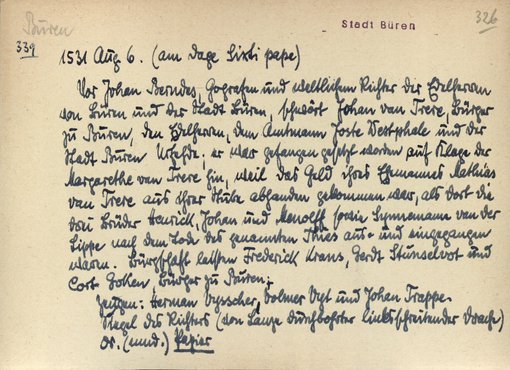 Büren
Stadt Büren
326
339
1531 Aug 6. (am dage Sixti pape)
Vor Johan Berndes, Gografen und weltlichem Richter der Edelherrn
von Büren und der Stadt Büren, schwört Johan van Trere, Bürger
zu Büren, den Edelherrn, dem Amtmann Joste Westphale und der
Stadt Büren Urfehde; er war gefangen gesetzt worden auf Klage der
Margarethe van Trere hin, weil das Geld ihres Ehemannes Mathias
van Trere aus ihrer abhanden gekommen war, als dort die
drei Brüder Henrick, Johan und Menolff sowie Synnemann van der
Lippe nach dem Tode des genannten Thies aus- und eingegangen
waren. Bürgschaft leisten Frederick Krans, Gerdt Stunselvot und
Cort Goken, Bürger zu Büren;
Zeugen: Herman Vysscher, Volmer Vyt und Johan Trappe.
Siegel des Richters (von Lanze durchbohrter linksschreitender Drache)
Or. (mnd.) Papier